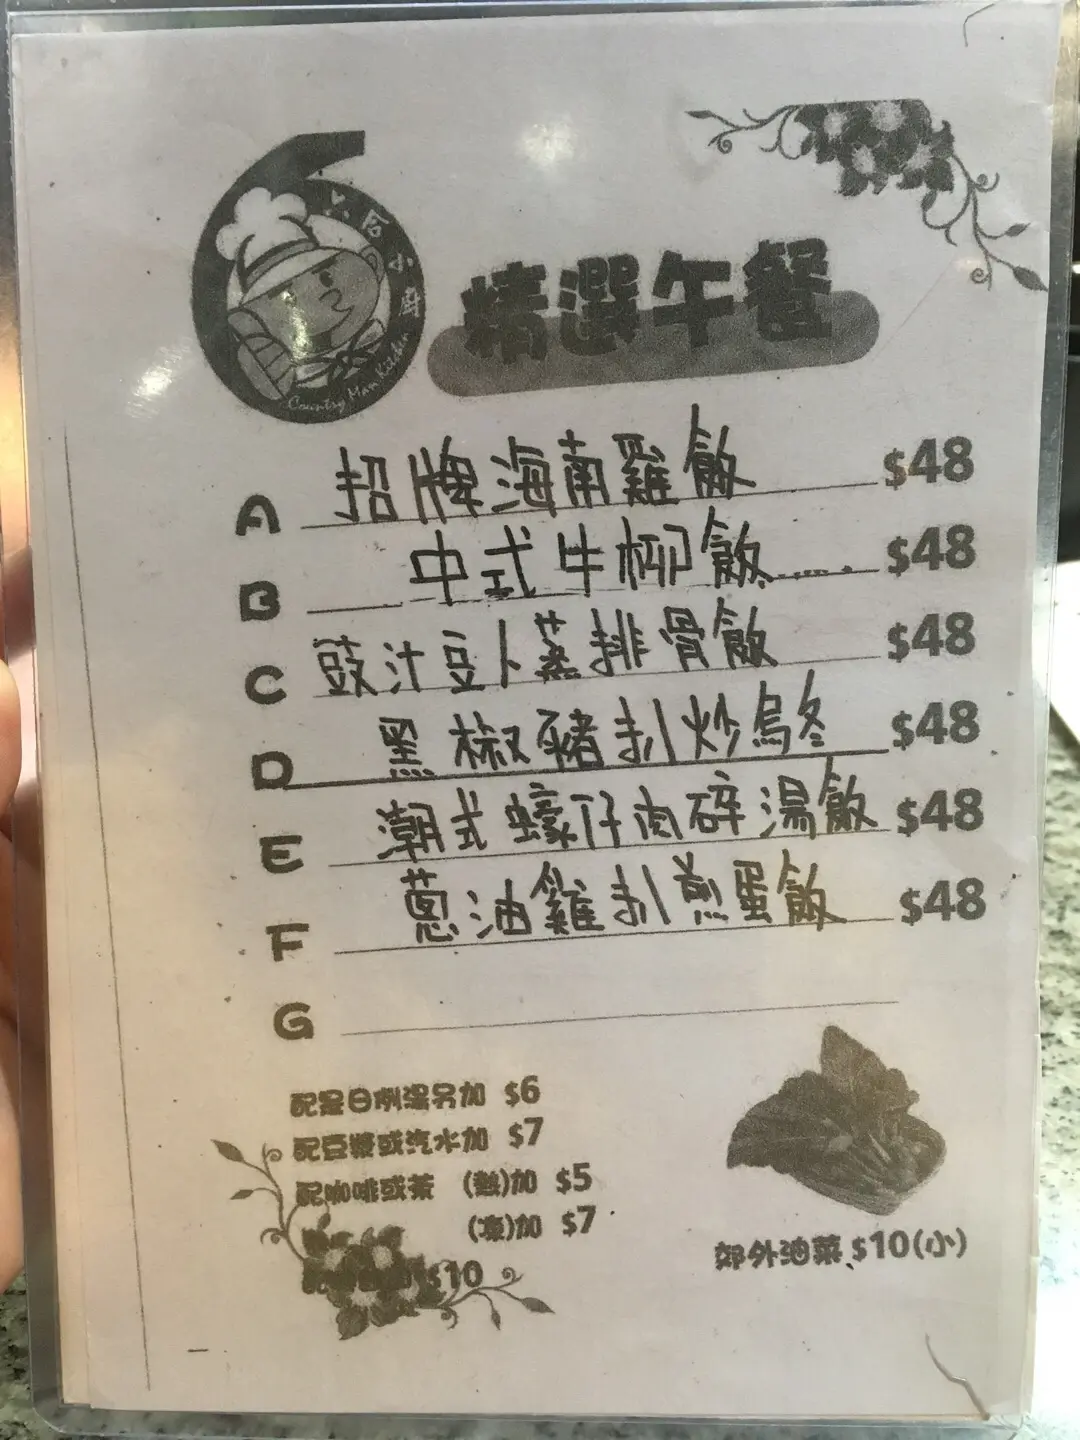 六合小廚
Country Man Kitchen
精選午餐
A 招牌海南雞飯 $48
B 中式牛柳飯 $48
C 豉汁豆卜蒸排骨飯 $48
D 黑椒豬扒炒烏冬 $48
E 潮式蠔仔肉碎湯飯 $48
F 蔥油雞扒煎蛋飯 $48
G
配是日例湯另加 $6
配豆漿或汽水加 $7
配咖啡或茶 (熱)加 $5
(凍)加 $7
$10
郊外油菜 $10(小)